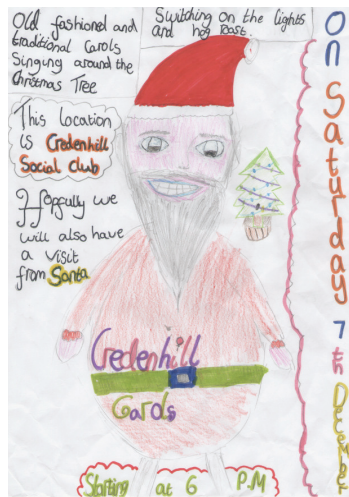 Old fashioned and
traditional Carols
Singing around the
Christmas Tree
Switching on the lights
and hog Roast.
This location
is Credenhill
Social club
Hopfully we
will also have
a visit
from Santa
Credenhill
Carols
Starting at 6 P.M
On Saturday 7th December